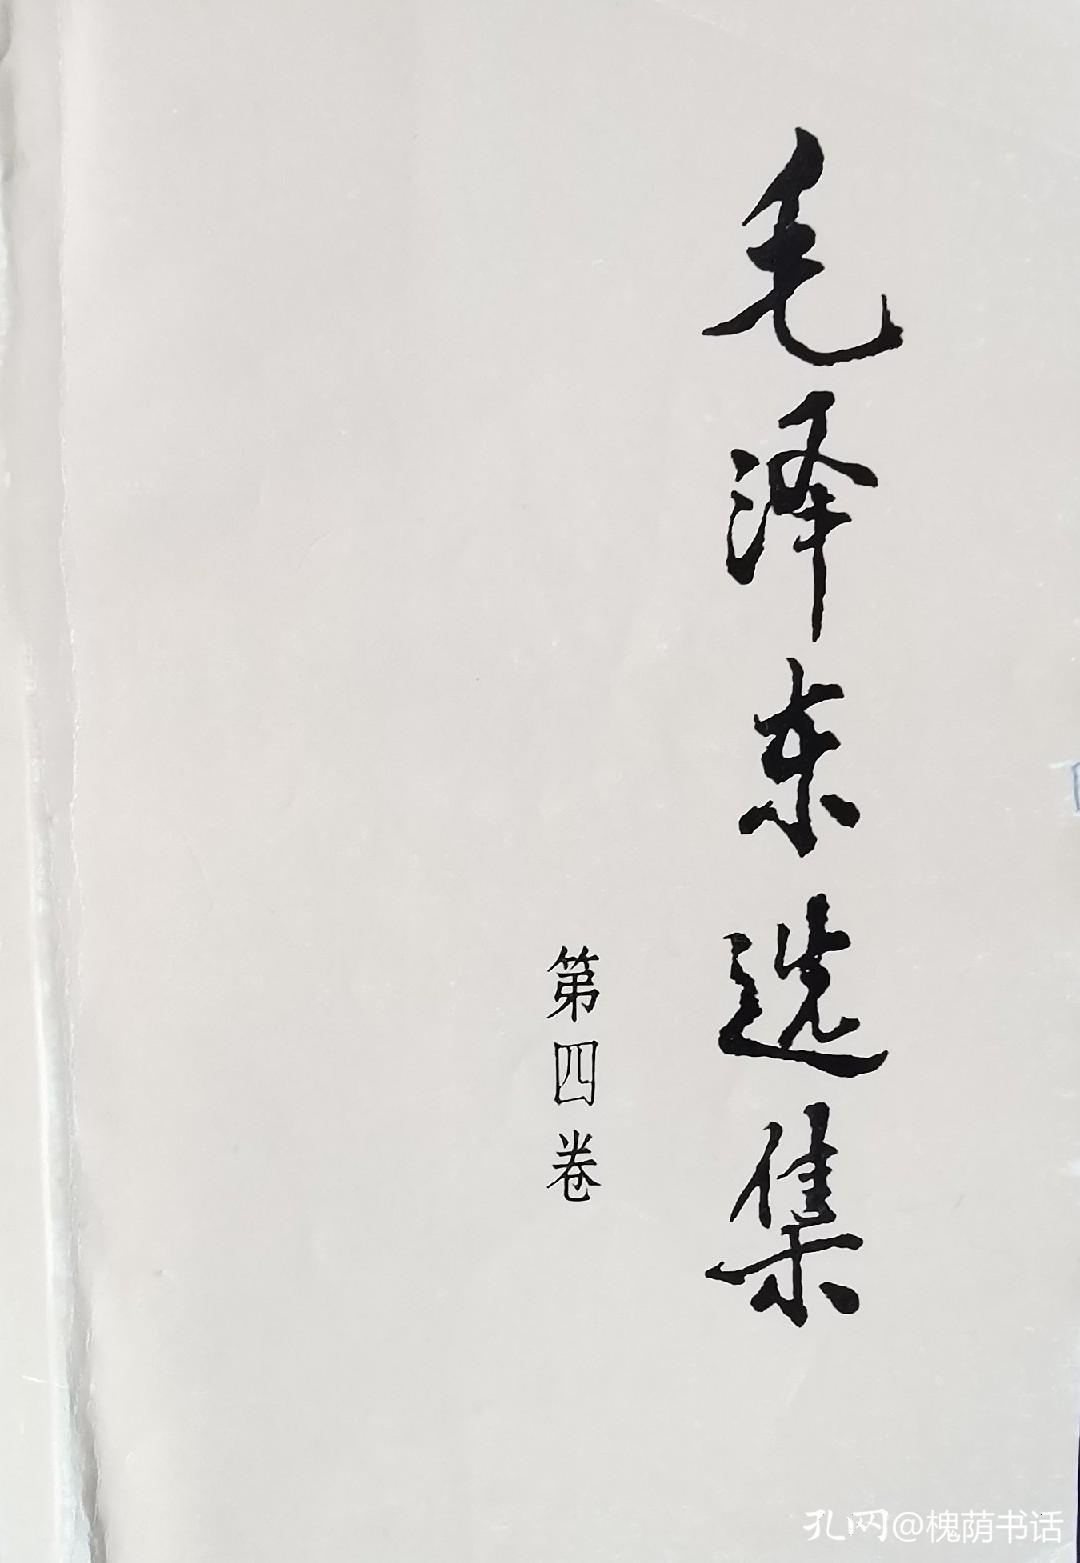 毛泽东选集
第四卷
孔网@槐荫书话